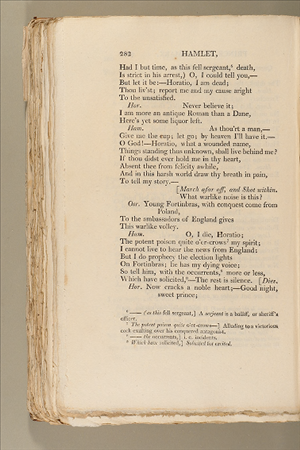 282 HAMLET,
Had I but time, as this fell sergeant,⁶ death,
Is strict in his arrest,) O, I could tell you,—
But let it be:—Horatio, I am dead;
Thou liv'st; report me and my cause aright
To the unsatisfied.
Hor. Never believe it;
I am more an antique Roman than a Dane,
Here's yet some liquor left.
Ham. As thou'rt a man,—
Give me the cup; let go; by heaven I'll have it.—
O God!—Horatio, what a wounded name,
Things standing thus unknown, shall live behind me?
If thou didst ever hold me in thy heart,
Absent thee from felicity awhile,
And in this harsh world draw thy breath in pain,
To tell my story.—
[March afar off, and Shot within.
What warlike noise is this?
Osr. Young Fortinbras, with conquest come from
Poland,
To the ambassadors of England gives
This warlike volley.
Ham. O, I die, Horatio;
The potent poison quite o'er-crows⁷ my spirit;
I cannot live to hear the news from England:
But I do prophecy the election lights
On Fortinbras; he has my dying voice;
So tell him, with the occurrents,⁸ more or less,
Which have solicited,⁹—The rest is silence. [Dies.
Hor. Now cracks a noble heart;—Good night,
sweet prince;
⁶ —— (as this fell sergeant,] A sergeant is a bailiff, or sheriff's
officer.
⁷ The potent poison quite o'er-crows—] Alluding to a victorious
cock exulting over his conquered antagonist.
⁸ —— the occurrents,] i. e. incidents.
⁹ Which have solicited,] Solicited for excited.